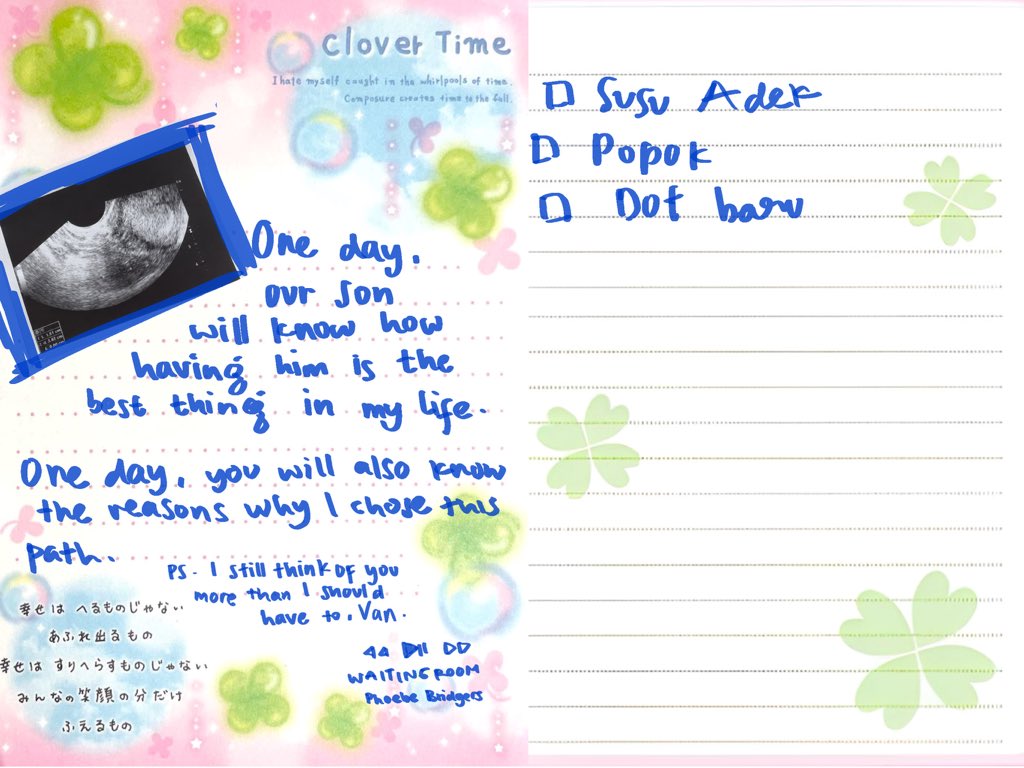 Clover Time
I hate myself caught in the whirlpools of time.
Composure creates time to the fall.
One day,
our son
will know how
having him is the
best thing in my life.
One day, you will also know
the reasons why I chose this
path.
PS. I still think of you
more than I should
have to, Van.
WAITING ROOM
Phoebe Bridgers
幸せは へるものじゃない
あふれ出るもの
幸せは すりへらすものじゃない
みんなの笑顔の分だけ
ふえるもの
Susu Adek
Popok
Dot baru